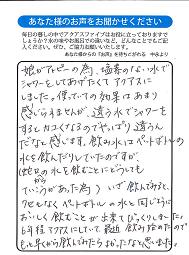 あなた様のお声をお聞かせください
毎日の暮しの中でアクアスファイブはお役に立っておりますで
しょうか?水の味やお風呂での違いなど、どんなことでもご記
入ください。ぜひ、ご協力お願いいたします。
あなた様からの「お声」を待ちこがれる
娘がアトピーの為、塩素のない水で
シャワーをしてあげたくてアクアスに
しました。使っていての効果はあまり
感じられませんが、違う水でシャワーを
するとカユくなるのでやっぱり違うん
だなと感じます。飲み水にはペットボトルの
水を飲んだりしていたのですが、
水を飲むことにどうしても
ていこうがあった為)いざ飲んでみると
クセもなくペットボトルの水と同じように
おいしく飲むことが出来てびっくりしました。
アクアスにしていて、最近飲み始めたので
もっと早くから飲んでみたらよかったなと思いました。